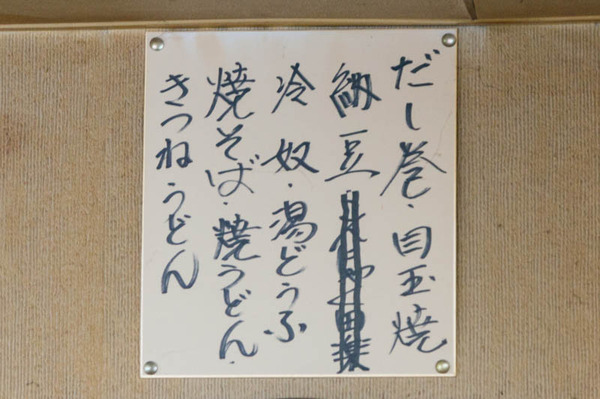 だし巻・目玉焼
納豆・
冷奴・湯どうふ
焼そば・焼うどん・
きつねうどん